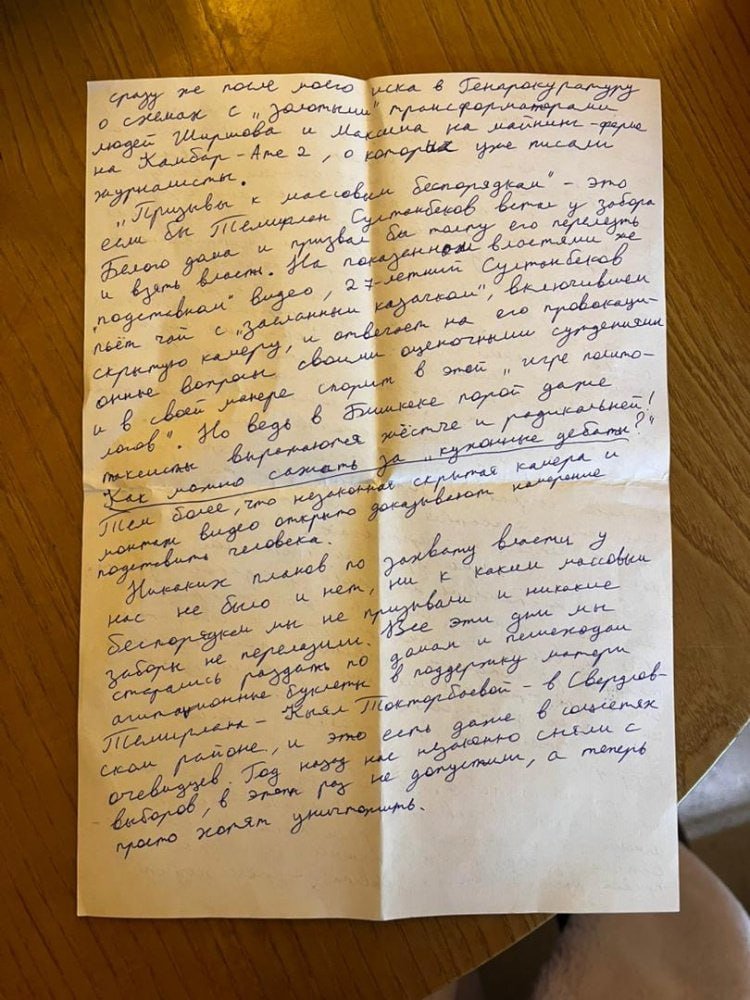 сразу же после моего иска в Генпрокуратуру
о схемах с „золотыми" трансформаторами
людей Ширшова и Максима на майнинг-ферме
на Камбар-Ате 2, о которых уже писали
журналисты.
„Призывы к массовым беспорядкам" - это
если бы Темирлан Султанбеков встал у забора
Белого дома и призвал бы толпу его перелезть
и взять власть. На показанном властями же
"подставном" видео, 27-летний Султанбеков
пьёт чай с „засланным казачком", включившем
скрытую камеру, и отвечает на его провокаци-
онные вопросы своими оценочными суждениями
и в своей манере спорит в этой „игре полито-
логов". Но ведь в Бишкеке порой даже
таксисты выражаются жёстче и радикальней!
Как можно сажать за „кухонные дебаты?"
Тем более, что незаконная скрытая камера и
монтаж видео открыто доказывают намерение
подставить человека.
Никаких планов по захвату власти у
нас не было и нет, ни к каким массовым
беспорядкам мы не призывали и никакие
заборы не перелазили. Все эти дни мы
старались раздать по домам и пешеходам
агитационные буклеты в поддержку матери
Темирлана - Кыял Токторбаевой - в Свердлов-
ском районе, и это есть даже в соцсетях
очевидцев. Год назад нас незаконно сняли с
выборов, в этот раз не допустили, а теперь
просто хотят уничтожить.